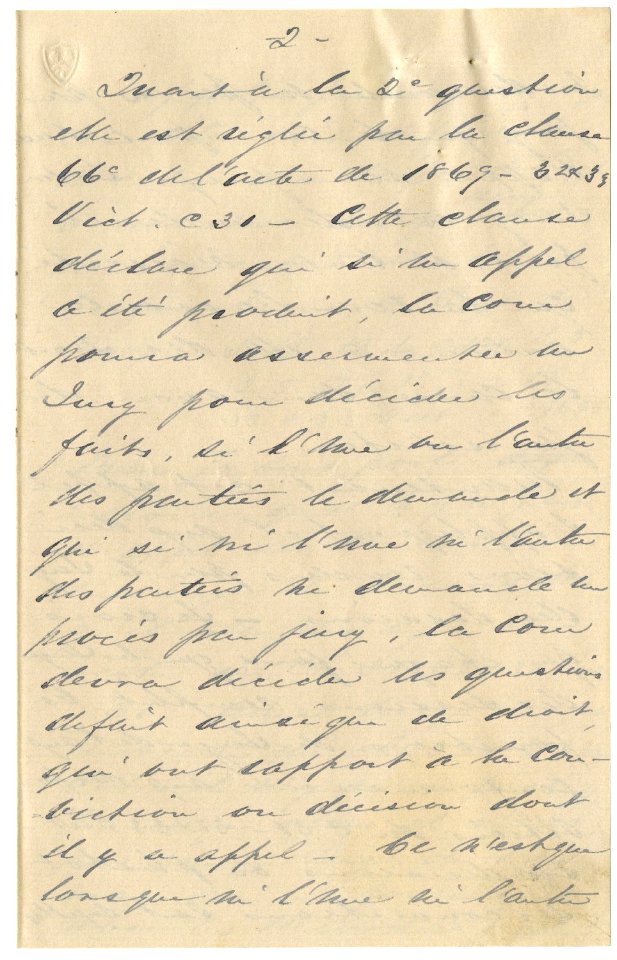 - 2 -
Quant à la 2e question
elle est réglée par la clause
66e de l'acte de 1869 - 32 & 33
Vict. c 31 - Cette clause
déclare que si un appel
a été produit, la Cour
pourra assermenter un
Jury pour décider les
faits, si l'une ou l'autre
des parties le demande et
que si ni l'une ni l'autre
des parties ne demande un
procès par jury, la Cour
devra décider les questions
de fait ainsi que de droit,
qui ont rapport a la con-
viction ou décision dont
il y a appel - Ce n'est que
lorsque ni l'une ni l'autre